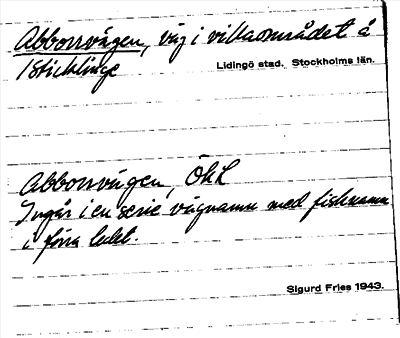 Abborrvägen, väg i villaområdet å
Sticklinge
Lidingö stad. Stockholms län.
Abborrvägen, ÖkL
Ingår i en serie vägnamn med fisknamn
i förra ledet.
Sigurd Fries 1943.